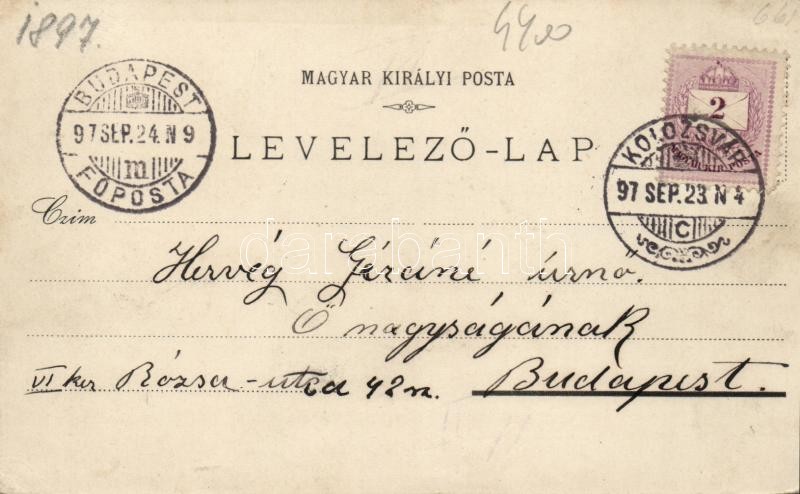 1897.
4400
661
MAGYAR KIRÁLYI POSTA
LEVELEZŐ-LAP
BUDAPEST
97 SEP. 24. N 9
m
FŐPOSTA
2
MAGYAR KIR. POSTA
KOLOZSVÁR
97 SEP. 23. N 4
C
Czim
darabanth
Hervég Gézáné úrnő
Ő nagyságának
VI ker Rózsa-utca 42 sz.
Budapest.